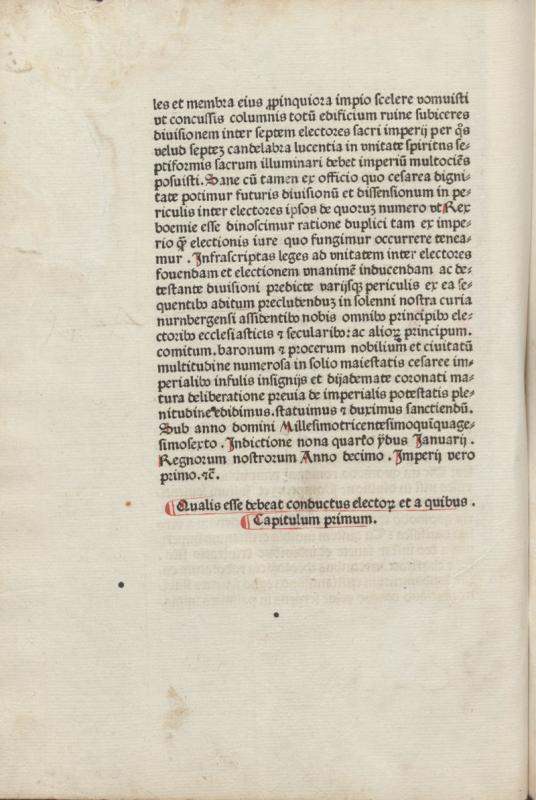 les et membra eius ꝓpinquiora impio scelere vomuisti
vt concussis columnis totū edificium ruine subiceres
diuisionem inter septem electores sacri imperij per q̄s
velud septeꝫ candelabra lucentia in vnitate spiritus se⸗
ptiformis sacrum illuminari debet imperiū multociēs
posuisti. Sane cū tamen ex officio quo cesarea digni⸗
tate potimur futuris diuisionū et dissensionum in pe⸗
riculis inter electores ipsos de quoruꝫ numero vt Rex
boemie esse dinoscimur ratione duplici tam ex impe⸗
rio ꝙ̄ electionis iure quo fungimur occurrere tenea⸗
mur . Infrascriptas leges ad vnitatem inter electores
fouendam et electionem vnanimē inducendam ac de⸗
testante diuisioni predicte varijsqꝫ periculis ex ea se⸗
quentibꝰ aditum precludenduꝫ in solenni nostra curia
nurnbergensi assidentibꝰ nobis omnibꝰ principibꝰ ele⸗
ctoribꝰ ecclesiasticis ⁊ secularibꝰ: ac alioꝝ principum.
comitum. baronum ⁊ procerum nobilium et ciuitatū
multitudine numerosa in solio maiestatis cesaree im⸗
perialibꝰ infulis insignijs et dijademate coronati ma⸗
tura deliberatione preuia de imperialis potestatis ple⸗
nitudine edidimus. statuimus ⁊ duximus sanctiendū.
Sub anno domini Millesimotricentesimoqūiquage⸗
simosexto . Indictione nona quarto ydus Ianuarij .
Regnorum nostrorum Anno decimo . Imperij vero
primo. ⁊c̄.
Qualis esse debeat conductus electoꝝ et a quibus .
Capitulum primum.